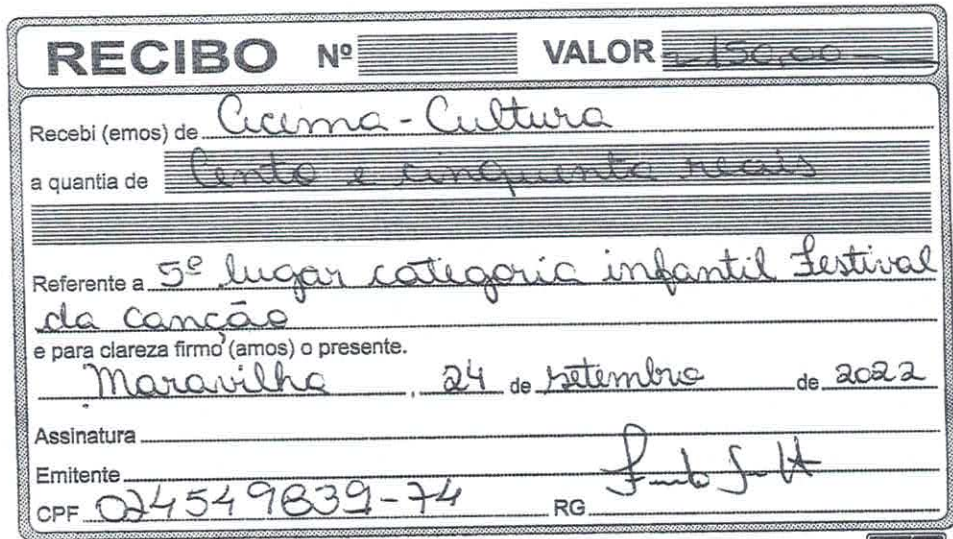 RECIBO Nº VALOR 150,00
Recebi (emos) de Cicema - Cultura
a quantia de Cento e cinquenta reais
Referente a 5º lugar categoria infantil Festival
da canção
e para clareza firmo (amos) o presente.
Maravilha, 24 de setembro de 2022
Assinatura
Emitente
CPF 024549839-74 RG